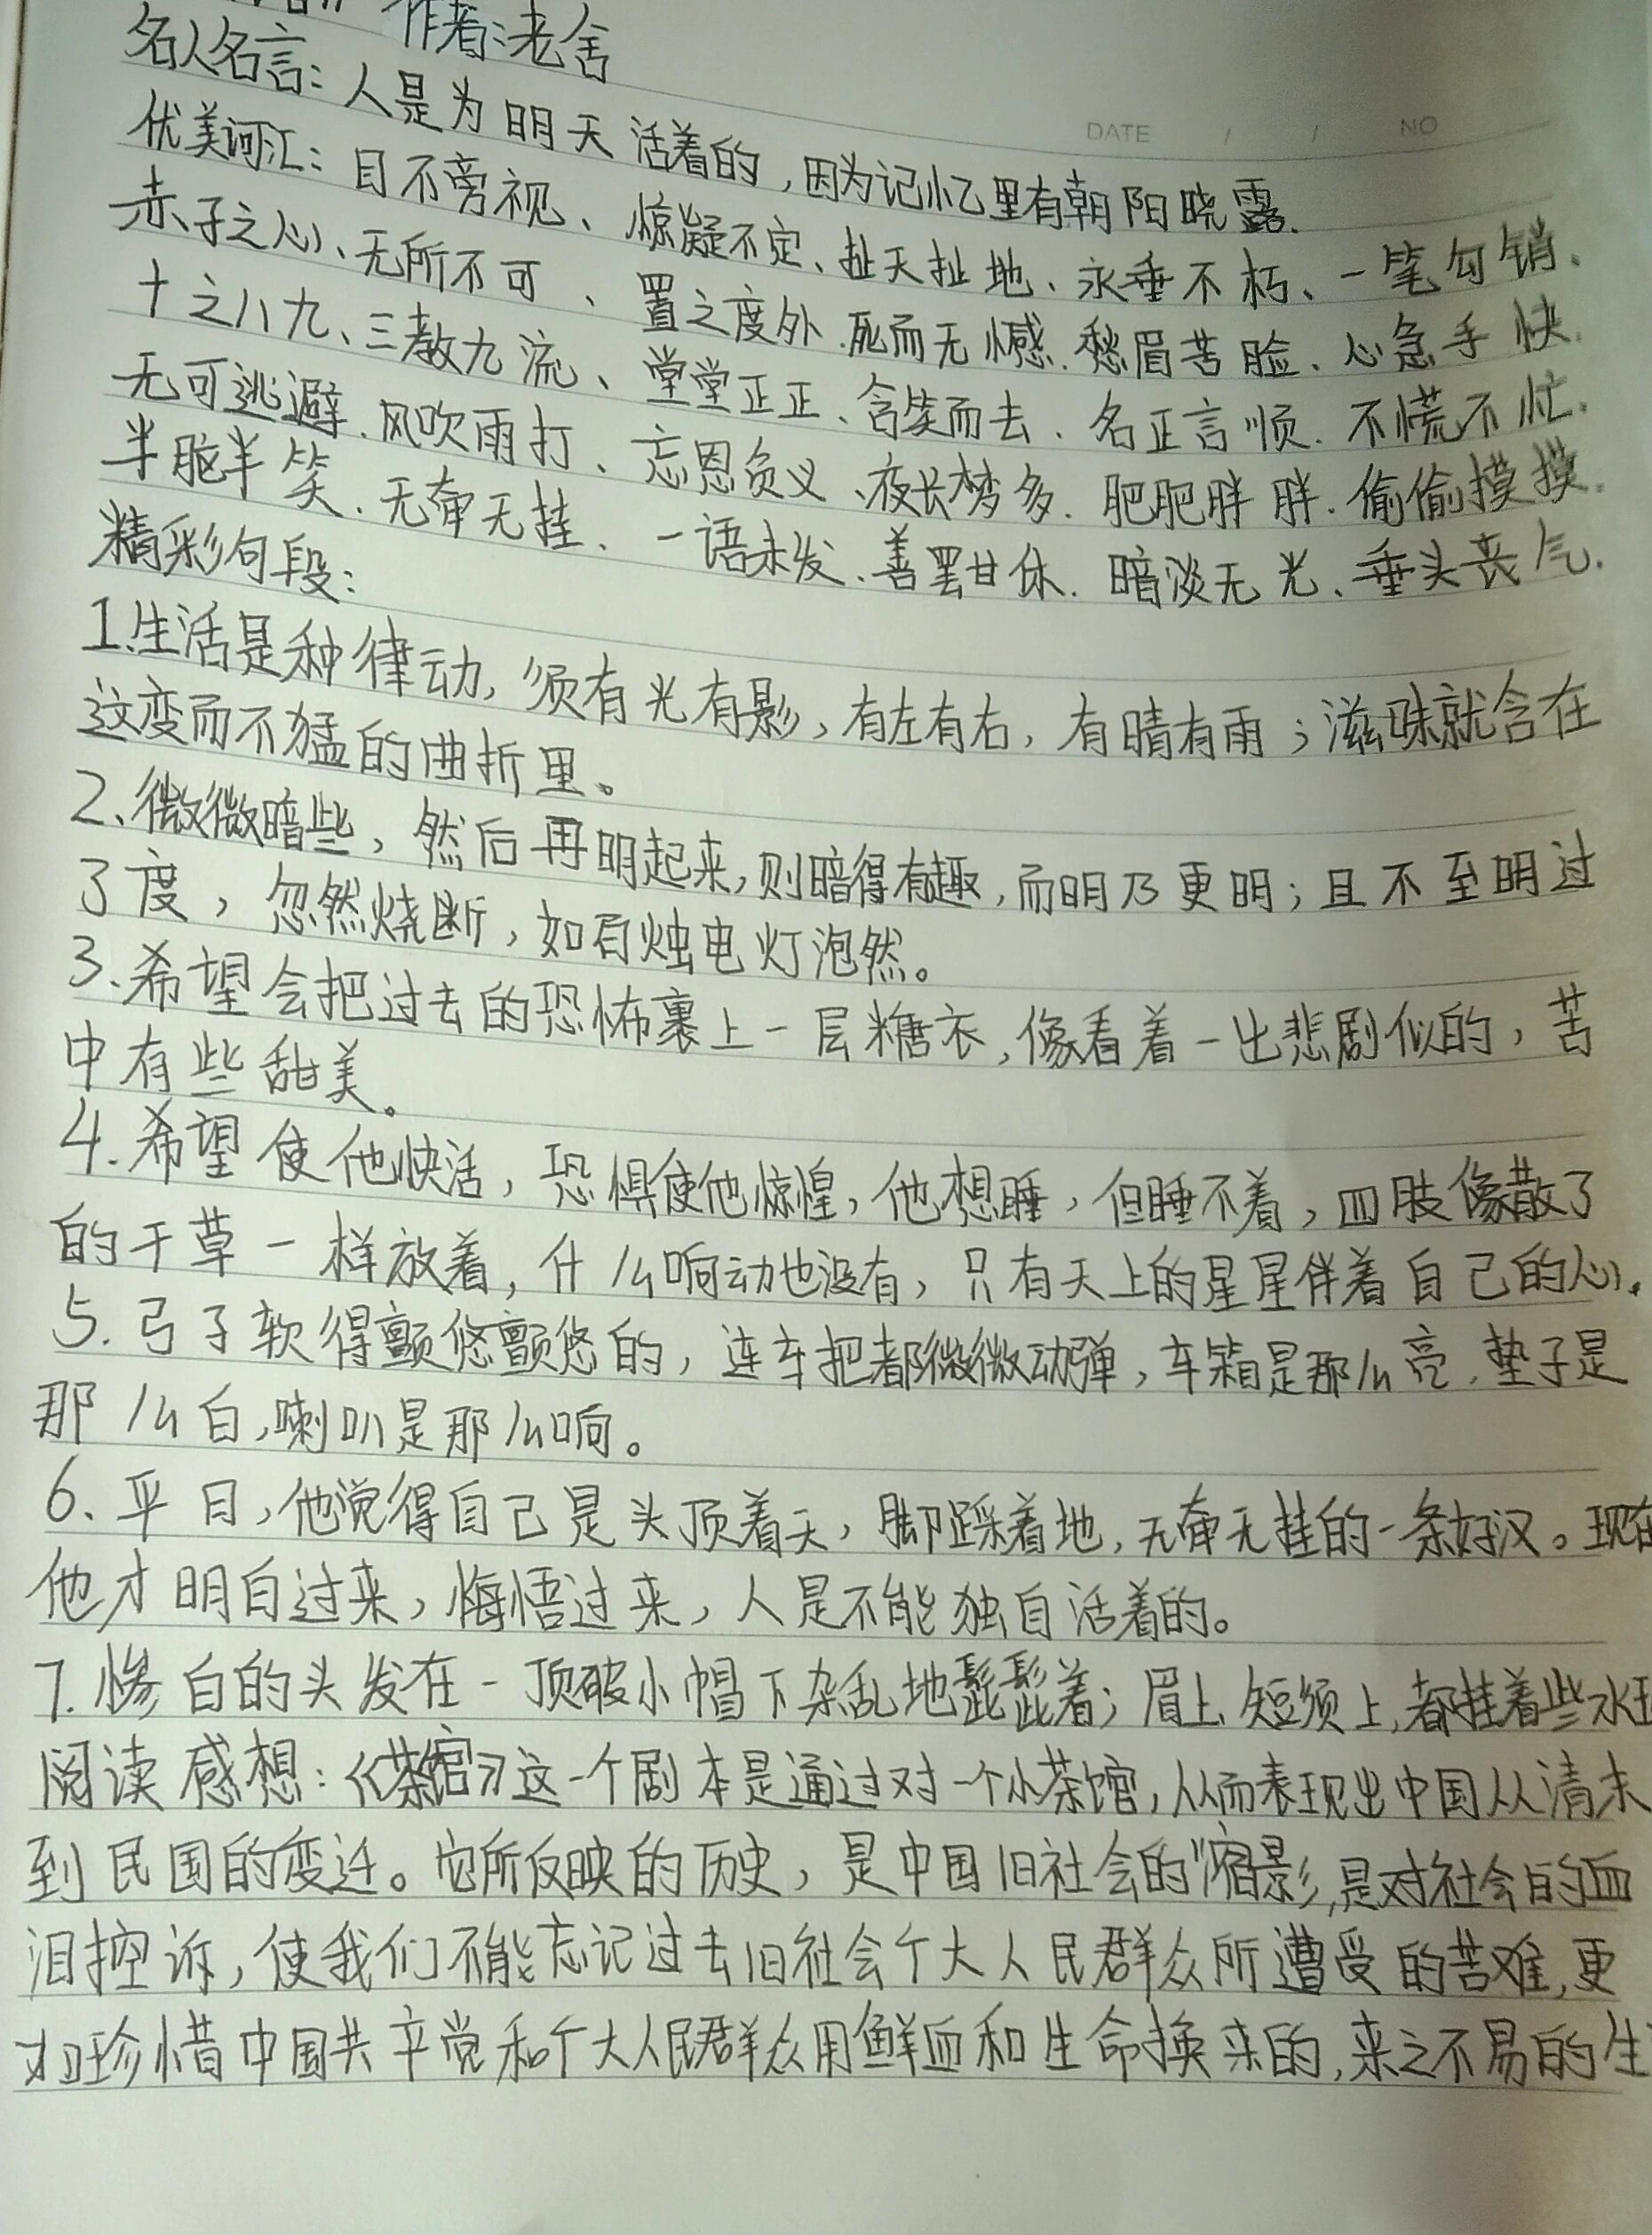 作者:老舍
DATE / / NO
名人名言：人是为明天活着的，因为记忆里有朝阳晓露.
优美词汇：目不旁视、惊疑不定、扯天扯地、永垂不朽、一笔勾销、
赤子之心、无所不可、置之度外.死而无憾.愁眉苦脸、心急手快.
十之八九、三教九流、堂堂正正、含笑而去.名正言顺.不慌不忙.
无可逃避.风吹雨打、忘恩负义、夜长梦多.肥肥胖胖.偷偷摸摸.
半脸半笑.无牵无挂、一语未发、善罢甘休.暗淡无光、垂头丧气.
精彩句段：
1.生活是种律动，须有光有影，有左有右，有晴有雨；滋味就含在
这变而不猛的曲折里。
2、微微暗些，然后再明起来，则暗得有趣，而明乃更明；且不至明过
了度，忽然烧断，如百烛电灯泡然。
3.希望会把过去的恐怖裹上一层糖衣，像看着一出悲剧似的，苦
中有些甜美。
4.希望使他快活，恐惧使他惊惶，他想睡，但睡不着，四肢像散了
的干草一样放着，什么响动也没有，只有天上的星星伴着自己的心。
5.弓子软得颤悠颤悠的，连车把都微微动弹，车箱是那么亮.垫子是
那么白，喇叭是那么响。
6、平日，他觉得自己是头顶着天，脚踩着地，无牵无挂的一条好汉。现在
他才明白过来，悔悟过来，人是不能独自活着的。
7.惨白的头发在一顶破小帽下杂乱地髭髭着；眉上、短须上，都挂着些水
阅读感想：《茶馆》这一个剧本是通过对一个小茶馆，从而表现出中国从清末
到民国的变迁。它所反映的历史，是中国旧社会的缩影，是对社会的血
泪控诉，使我们不能忘记过去旧社会个大人民群众所遭受的苦难，更
加珍惜中国共产党和个大人民群众用鲜血和生命换来的，来之不易的生